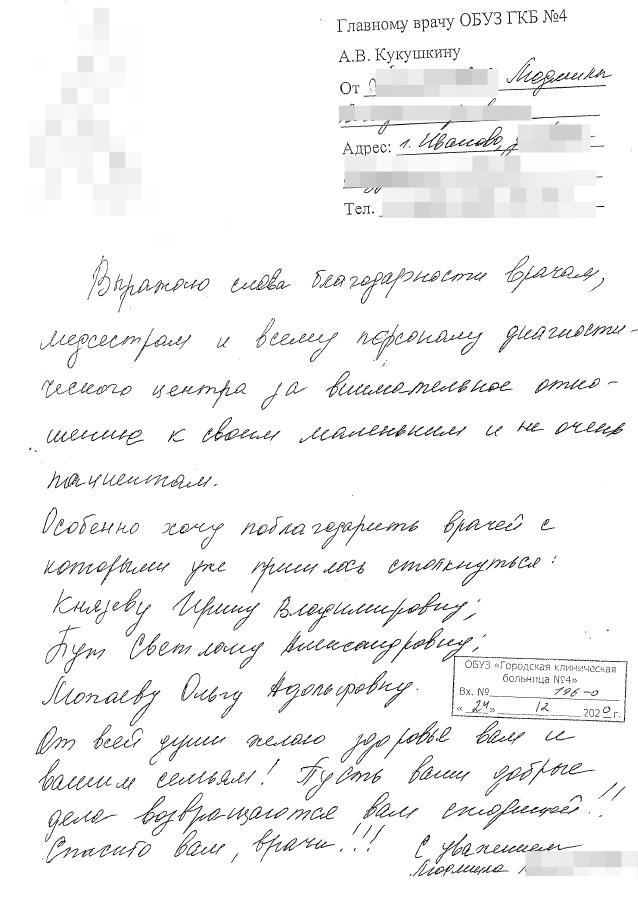 Главному врачу ОБУЗ ГКБ №4
А.В. Кукушкину
От Людмилы
Адрес: г. Иваново,
Тел.
Выражаю слова благодарности врачам,
медсестрам и всему персоналу диагности-
ческого центра за внимательное отно-
шение к своим маленьким и не очень
пациентам.
Особенно хочу поблагодарить врачей с
которыми уже пришлось столкнуться:
Князеву Ирину Владимировну;
Бут Светлану Александровну;
Ольгу Адольфовну.
ОБУЗ «Городская клиническая
больница №4»
Вх. № 196-о
« 24 » 12 2020 г.
От всей души желаю здоровья вам и
вашим семьям! Пусть ваши добрые
дела возвращаются вам сторицей!!
Спасибо вам, врачи!!!
С уважением
Людмила